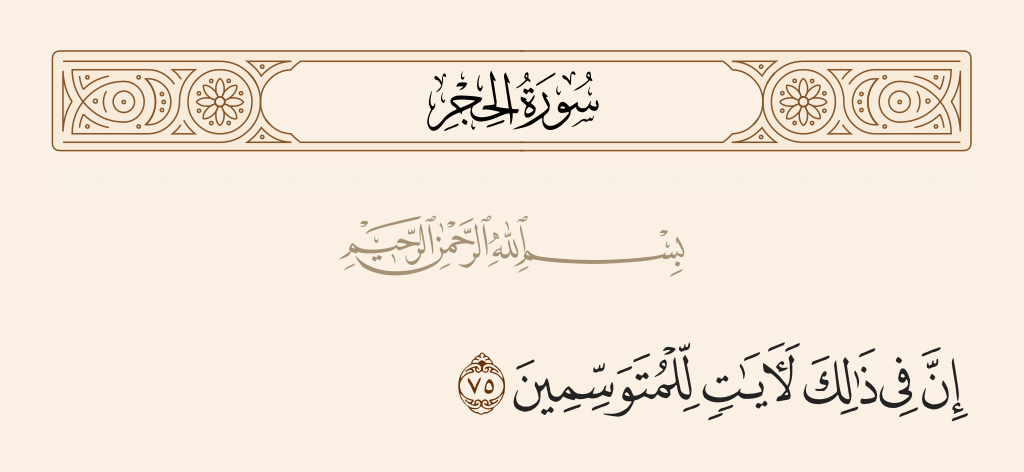 سُورَةُ الحِجْرِ
بِسْمِ ٱللَّهِ ٱلرَّحْمَٰنِ ٱلرَّحِيمِ
إِنَّ فِى ذَٰلِكَ لَـَٔايَـٰتٍ لِّلْمُتَوَسِّمِينَ ٧٥